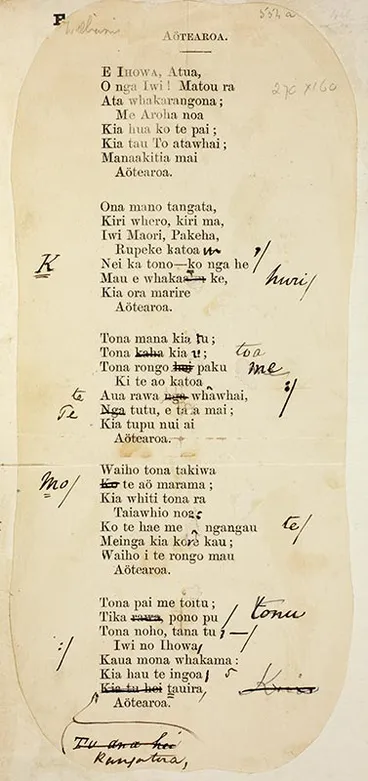 F
AŌTEAROA.
270 x 160
E IHOWA, Atua,
O nga Iwi! Matou ra
Ata whakarangona;
Me Aroha noa
Kia hua ko te pai;
Kia tau To atawhai;
Manaakitia mai
Aōtearoa.
Ona mano tangata,
Kiri whero, kiri ma,
Iwi Maori, Pakeha,
Rupeke katoa
K Nei ka tono—ko nga he
Mau e whaka ke, huri/
Kia ora marire
Aōtearoa.
Tona mana kia tu;
Tona kaha kia u; toa
Tona rongo hei paku me
Ki te ao katoa
te Aua rawa nga whawhai,
Te Nga tutu, e tata mai;
Kia tupu nui ai
Aōtearoa.
Waiho tona takiwa
Mo/ Ko te aō marama;
Kia whiti tona ra
Taiawhio noa:
Ko te hae me ngangau te/
Meinga kia kore kau;
Waiho i te rongo mau
Aōtearoa.
Tona pai me toitu;
Tika rawa, pono pu / tonu
Tona noho, tana tu; —/
:/ Iwi no Ihowa,
Kaua mona whakama:
Kia hau te ingoa;
Kia tu hei tauira,
Aōtearoa.
Tu ana hei
Rangatira,